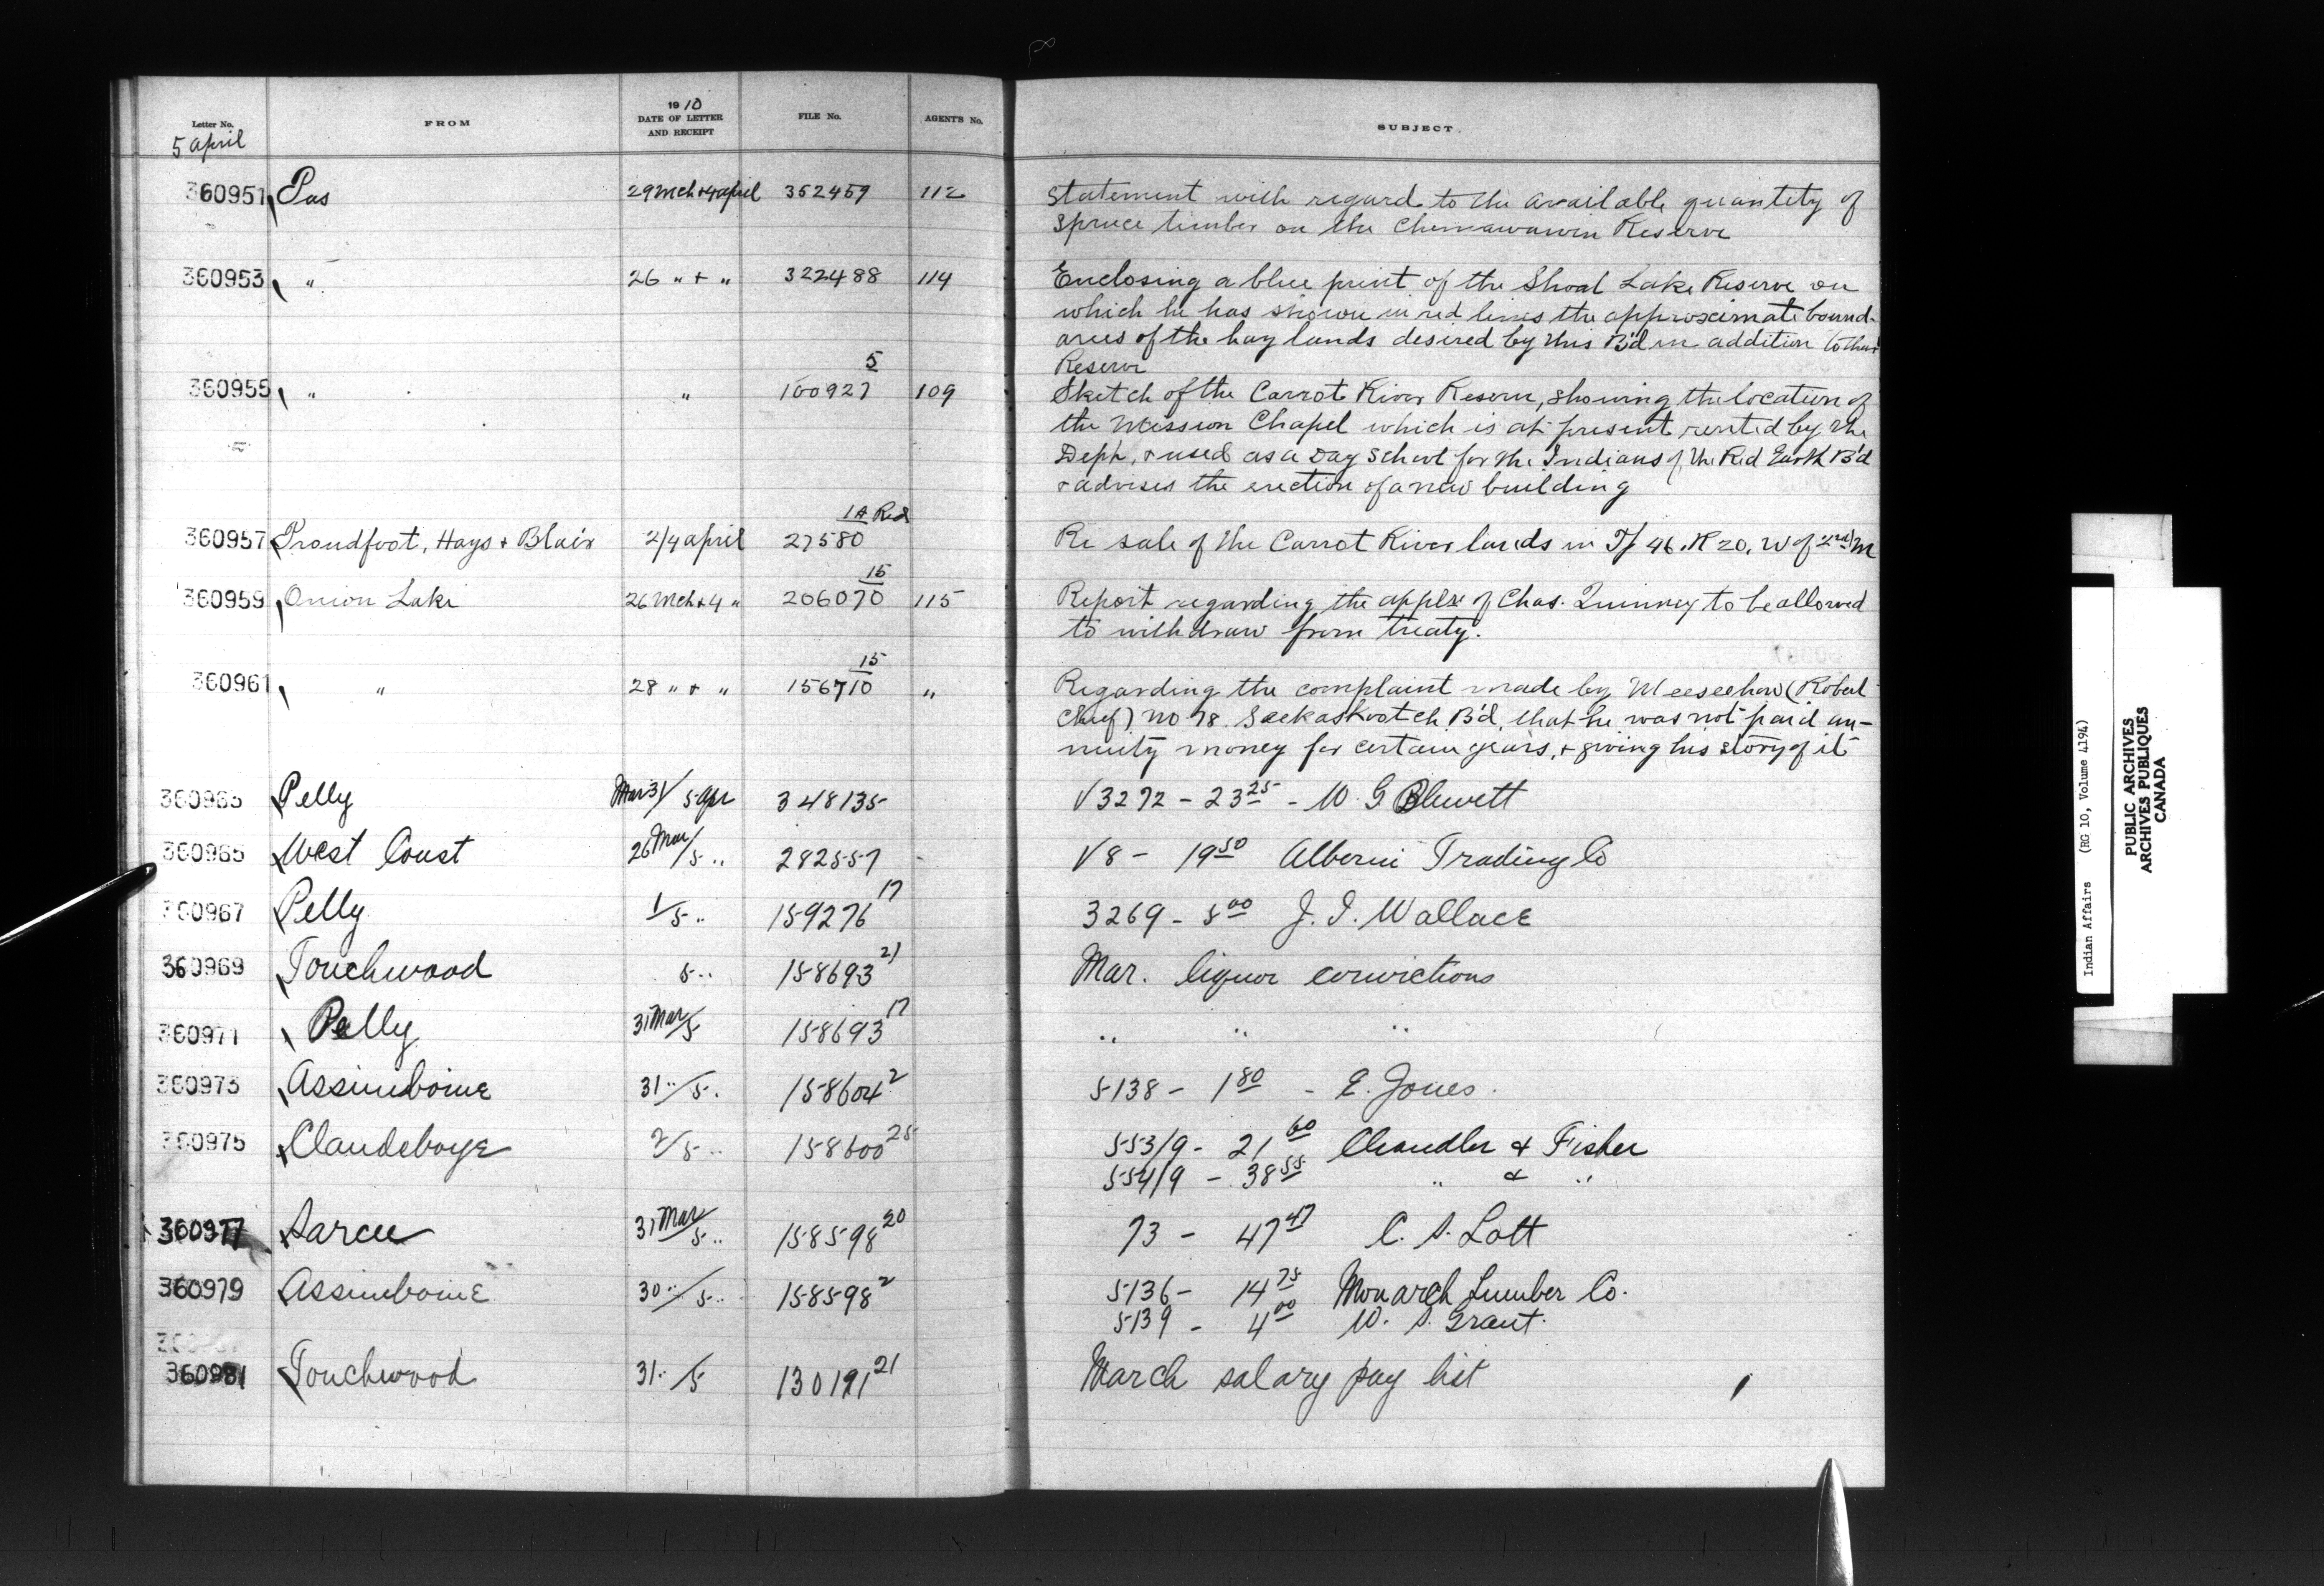 Letter No. FROM 1910 DATE OF LETTER AND RECEIPT FILE No. AGENT'S No. SUBJECT
5 april
360951 Pas 29 Mch + 4 april 352459 112 Statement with regard to the available quantity of
spruce timber on the Chemawawin Reserve
360953 " 26 " + " 322488 114 Enclosing a blue print of the Shoal Lake Reserve on
which he has shown in red lines the approximate bound-
aries of the hay lands desired by this B'd in addition to their
Reserve
360955 " " 100927 5 109 Sketch of the Carrot River Reserve, showing the location of
the Mission Chapel which is at present rented by the
Dept, + used as a Day School for the Indians of the Red Earth B'd
+ advises the erection of a new building
360957 Proudfoot, Hays + Blair 2/4 april 27580 1A Red Re sale of the Carrot River lands in T/ 46. R 20. W of 2nd M
360959 Onion Lake 26 Mch + 4 " 206070 15 115 Report regarding the appln of Chas. Quinney to be allowed
to withdraw from treaty.
360961 " 28 " + " 156710 15 " Regarding the complaint made by Meeseehow (Robert
Chief) No 78. Seekaskootch B'd, that he was not paid an-
nuity money for certain years, + giving his story of it
360963 Pelly Mar 31/ 5 Apr 348135 V 3272 - 23 25 - W. G Blewett
360965 West Coast 26 Mar/5 " 282557 V 8 - 19 50 Alberni Trading Co
360967 Pelly 1/5 " 159276 17 3269 - 5 00 J. I. Wallace
360969 Touchwood 5 " 158693 21 Mar. liquor convictions
360971 Pelly 31 Mar/5 158693 17 " " "
360973 Assiniboine 31 "/5 " 158604 2 5138 - 1 80 - E. Jones.
360975 Clandeboye 2/5 " 158600 25 553/9 - 21 60 Chandler & Fisher
554/9 - 38 55 " & "
360977 Sarcee 31 Mar/5 " 158598 20 73 - 47 47 C. S. Lott
360979 Assiniboine 30 "/5 " 158598 2 5136 - 14 75 Monarch Lumber Co.
5139 - 4 00 W. S. Grant.
360981 Touchwood 31 "/5 130191 21 March salary pay list
Indian Affairs (RG 10, Volume 4194)
PUBLIC ARCHIVES
ARCHIVES PUBLIQUES
CANADA